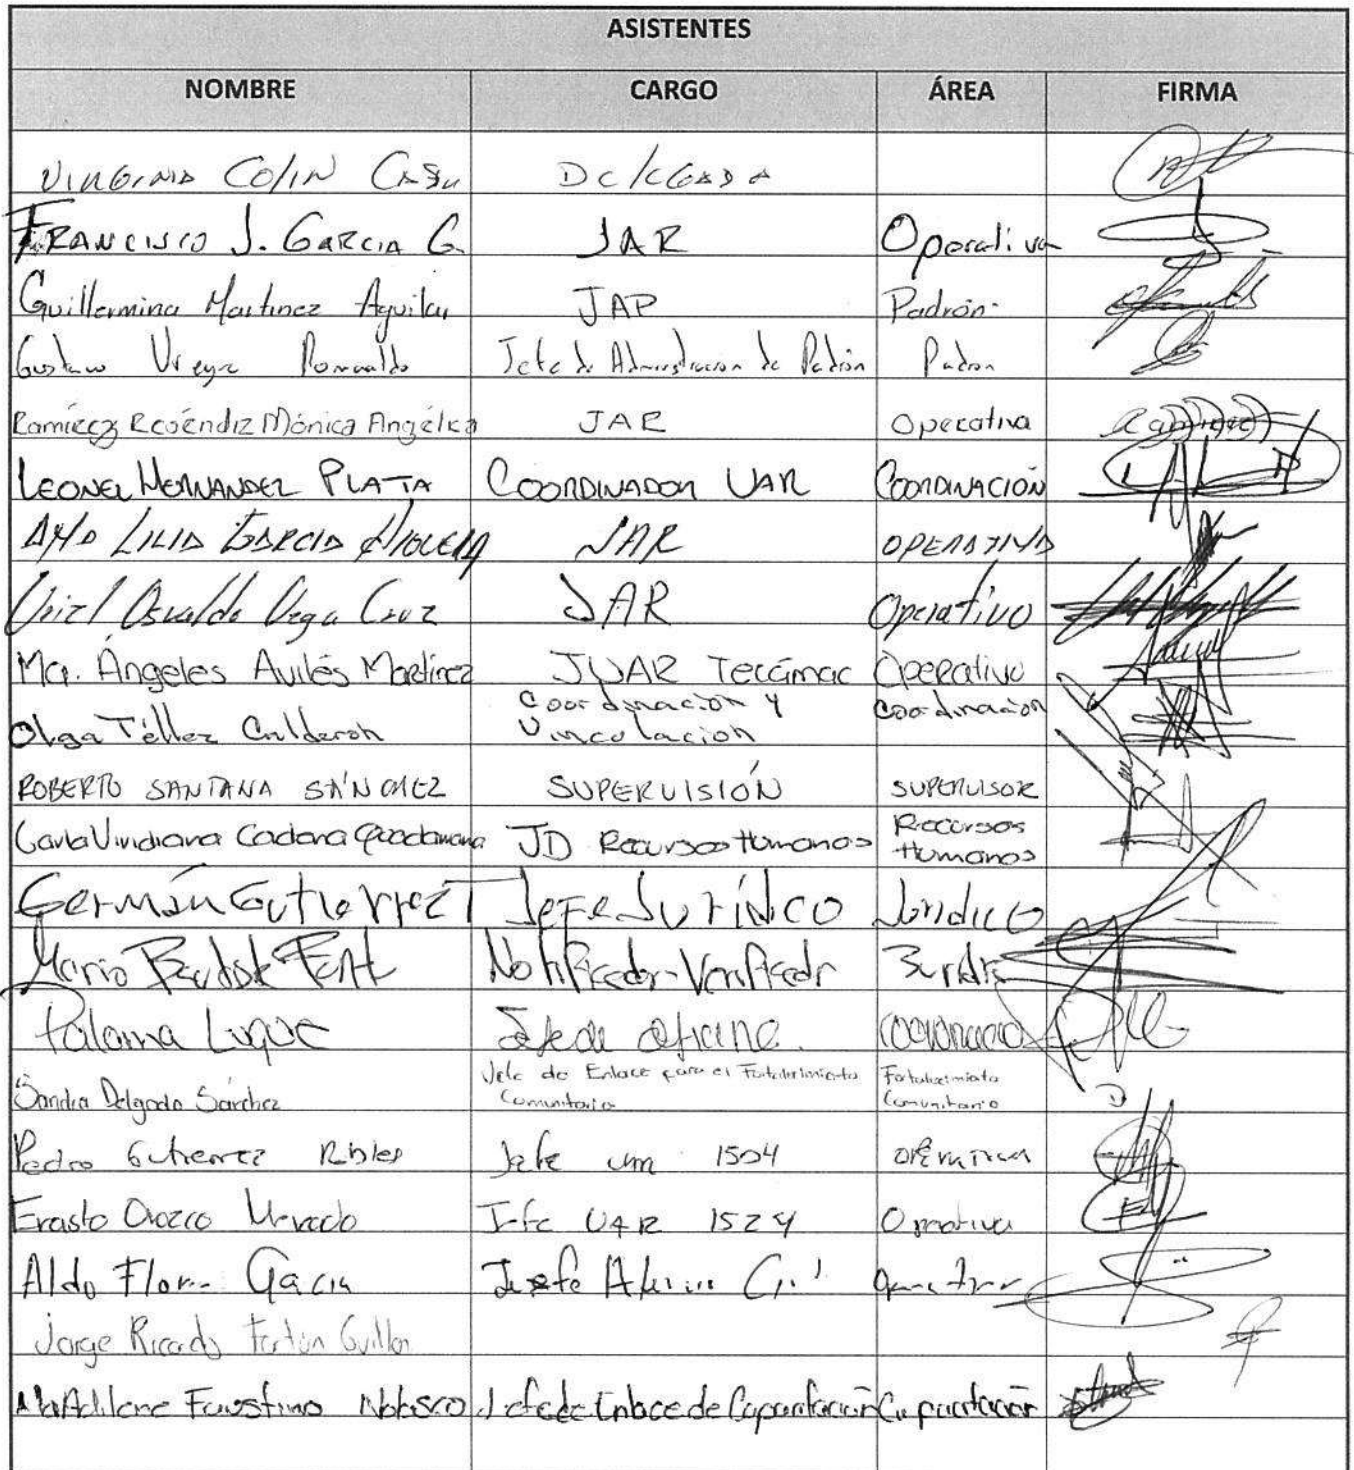 ASISTENTES
NOMBRE CARGO ÁREA FIRMA
VIRGINIA COLIN DELEGADA
FRANCISCO J. GARCIA G. JAR Operativa
Guillermina Martinez Aguilar JAP Padrón
Gustavo Romualdo Jefe de Administracion de Padrón Padron
Ramírez Reséndiz Mónica Angélica JAR Operativa
LEONEL HERNANDEZ PLATA COORDINADOR UAR COORDINACIÓN
LILIA GARCIA HIGUERA JAR OPERATIVA
Uriel Osvaldo Vega Cruz JAR Operativo
Ma. Ángeles Avilés Martínez JUAR Tecámac Operativo
Olga Téllez Calderon Coordinación y Coordinación
Vinculación
ROBERTO SANTANA SÁNCHEZ SUPERVISIÓN SUPERVISOR
Carla Viridiana Cadena JD Recursos Humanos Recursos
Humanos
Germán Gutierrez T Jefe Jurídico Juridico
Mario Bautista Notificador-Verificador
Paloma Luque Jefe de oficina
Sandra Delgado Sánchez Jefe de Enlace para el Fortalecimiento Fortalecimiento
Comunitario Comunitario
Pedro Gutierrez Robles Jefe 1504 operativa
Erasto Orozco Jefe UAR 1524 Operativa
Aldo
Jorge Ricardo
Ma Adilene Faustino Nolasco Jefe de Enlace de Capacitación Capacitación